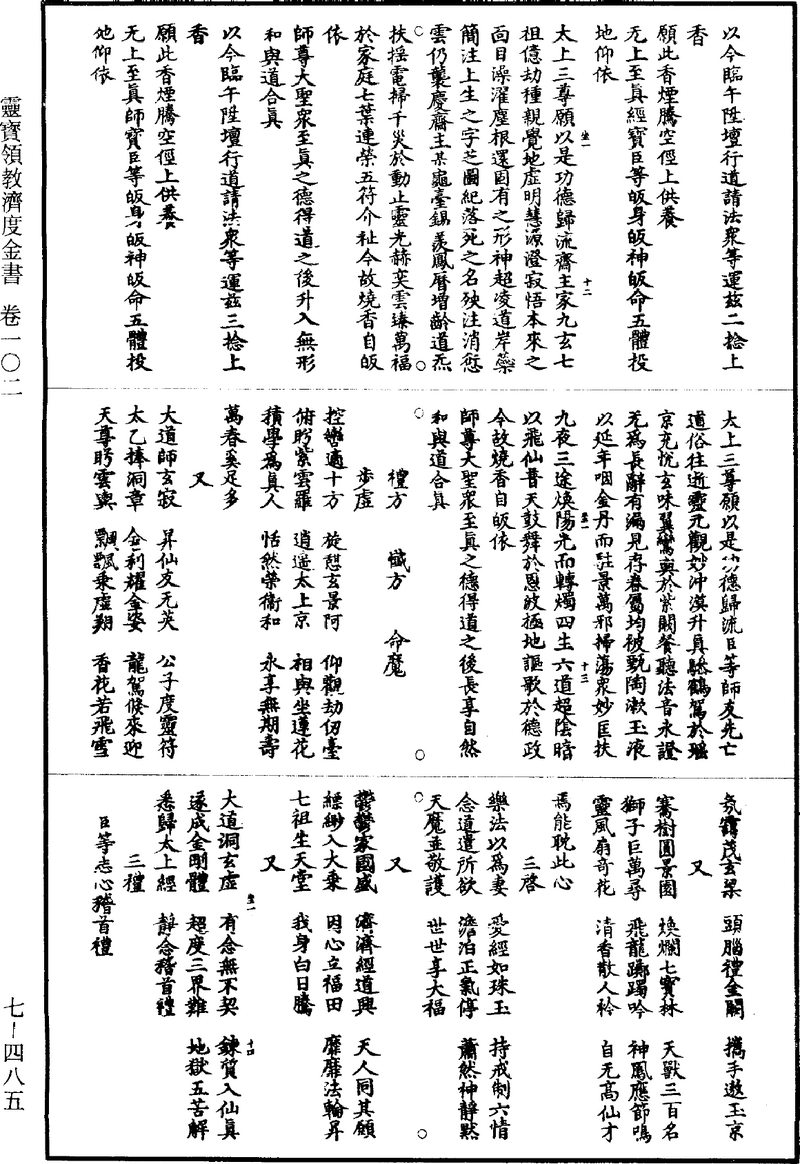 靈寶領教濟度金書　卷一〇二
七－四八五
以今臨午陞壇行道請法衆等運兹二捻上
香
願此香煙騰空徑上供養
无上至眞經寶臣等皈身皈神皈命五體投
地仰依
太上三尊願以是功德歸流齋主家九玄七
祖億劫種親覺地虛明慧源澄寂悟本來之
面目澡濯塵根還固有之形神超凌道岸蘂
簡注上生之字芝圖紀落死之名殃注消愆
雲仍襲慶齋主某龜臺錫羨鳳曆增齡道炁
扶摇電掃千災於動止靈光赫奕雲臻萬福
於家庭七葉連榮五符介祉今故燒香自皈
依
師尊大聖衆至眞之德得道之後升入無形
和與道合眞
以今臨午陞壇行道請法衆等運兹三捻上
香
願此香煙騰空徑上供養
无上至眞師寶臣等皈身皈神皈命五體投
地仰依
太上三尊願以是功德歸流臣等師友先亡
道俗往逝靈元觀妙沖漠升眞驂鶴駕於瑶
京充悅玄味翼鸞輿於紫闕餐聽法音永證
无爲長辭有漏見存眷屬均被甄陶漱玉液
以延年咽金丹而駐景萬邪掃蕩衆妙匡扶
九夜三途煥陽光而轉燭四生六道超陰暗
以飛仙普天鼓舞於恩波極地謳歌於德政
今故燒香自皈依
師尊大聖衆至眞之德得道之後長享自然
和與道合眞
禮方　懺方　命魔
步虛
控轡適十方　旋憩玄景阿　仰觀劫仞臺
俯盻紫雲羅　逍遥太上京　相與坐蓮花
積學爲眞人　恬然榮衞和　永享無期壽
萬春奚足多
又
大道師玄寂　昇仙友无英　公子度靈符
太乙捧洞章　金刹耀金姿　龍駕倏來迎
天尊盻雲輿　飄飄乘虛翔　香花若飛雪
氛靄茂玄梁　頭腦禮金闕　攜手遨玉京
又
騫樹圓景園　煥爛七寶林　天獸三百名
獅子巨萬尋　飛龍躑躅吟　神鳳應節鳴
靈風扇奇花　清香散人衿　自无高仙才
焉能耽此心
三啓
樂法以爲妻　愛經如珠玉　持戒制六情
念道遣所欲　澹泊正氣停　蕭然神靜默
天魔並敬護　世世享大福
又
鬱鬱家國盛　濟濟經道興　天人同其願
縹緲入大乘　因心立福田　靡靡法輪昇
七祖生天堂　我身白日騰
又
大道洞玄虛　有念無不契　鍊質入仙眞
遂成金剛體　超度三界難　地獄五苦解
悉歸太上經　靜念稽首禮
三禮
臣等志心稽首禮